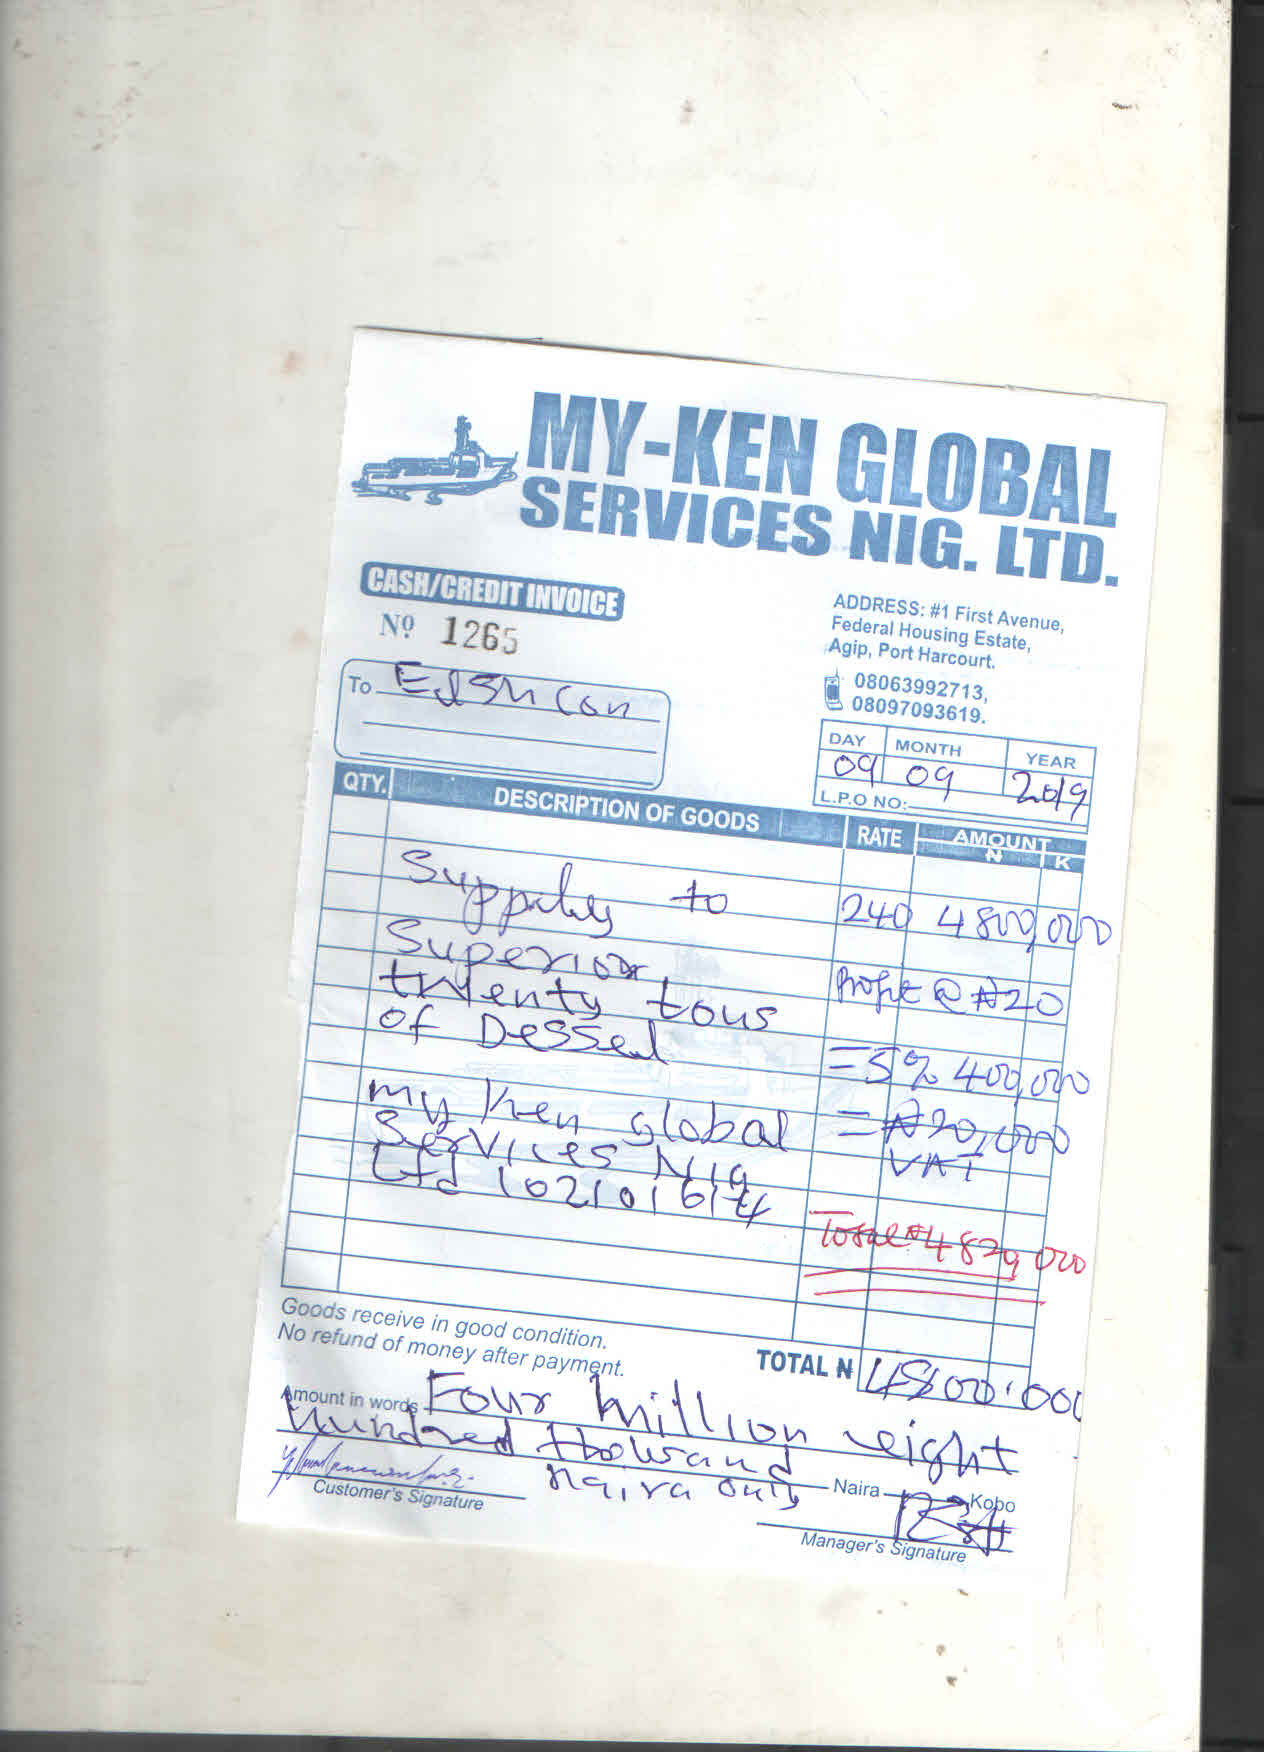 MY-KEN GLOBAL
SERVICES NIG. LTD.
CASH/CREDIT INVOICE
Nº 1265
ADDRESS: #1 First Avenue,
Federal Housing Estate,
Agip, Port Harcourt.
08063992713,
08097093619.
To
DAY MONTH YEAR
09 09 2019
L.P.O NO:
QTY. DESCRIPTION OF GOODS RATE AMOUNT
₦ K
to 240 4800,000
Superior
twenty tous Profit @ ₦20
of Dessel
=5% 400,000
my Ken global =₦20,000
Services Nig VAT
Ltd 1021016174
Total ₦4820,000
Goods receive in good condition.
No refund of money after payment.
TOTAL ₦ 4800,000
Amount in words Four million eight
hundred thousand
naira only Naira Kobo
Customer's Signature
Manager's Signature